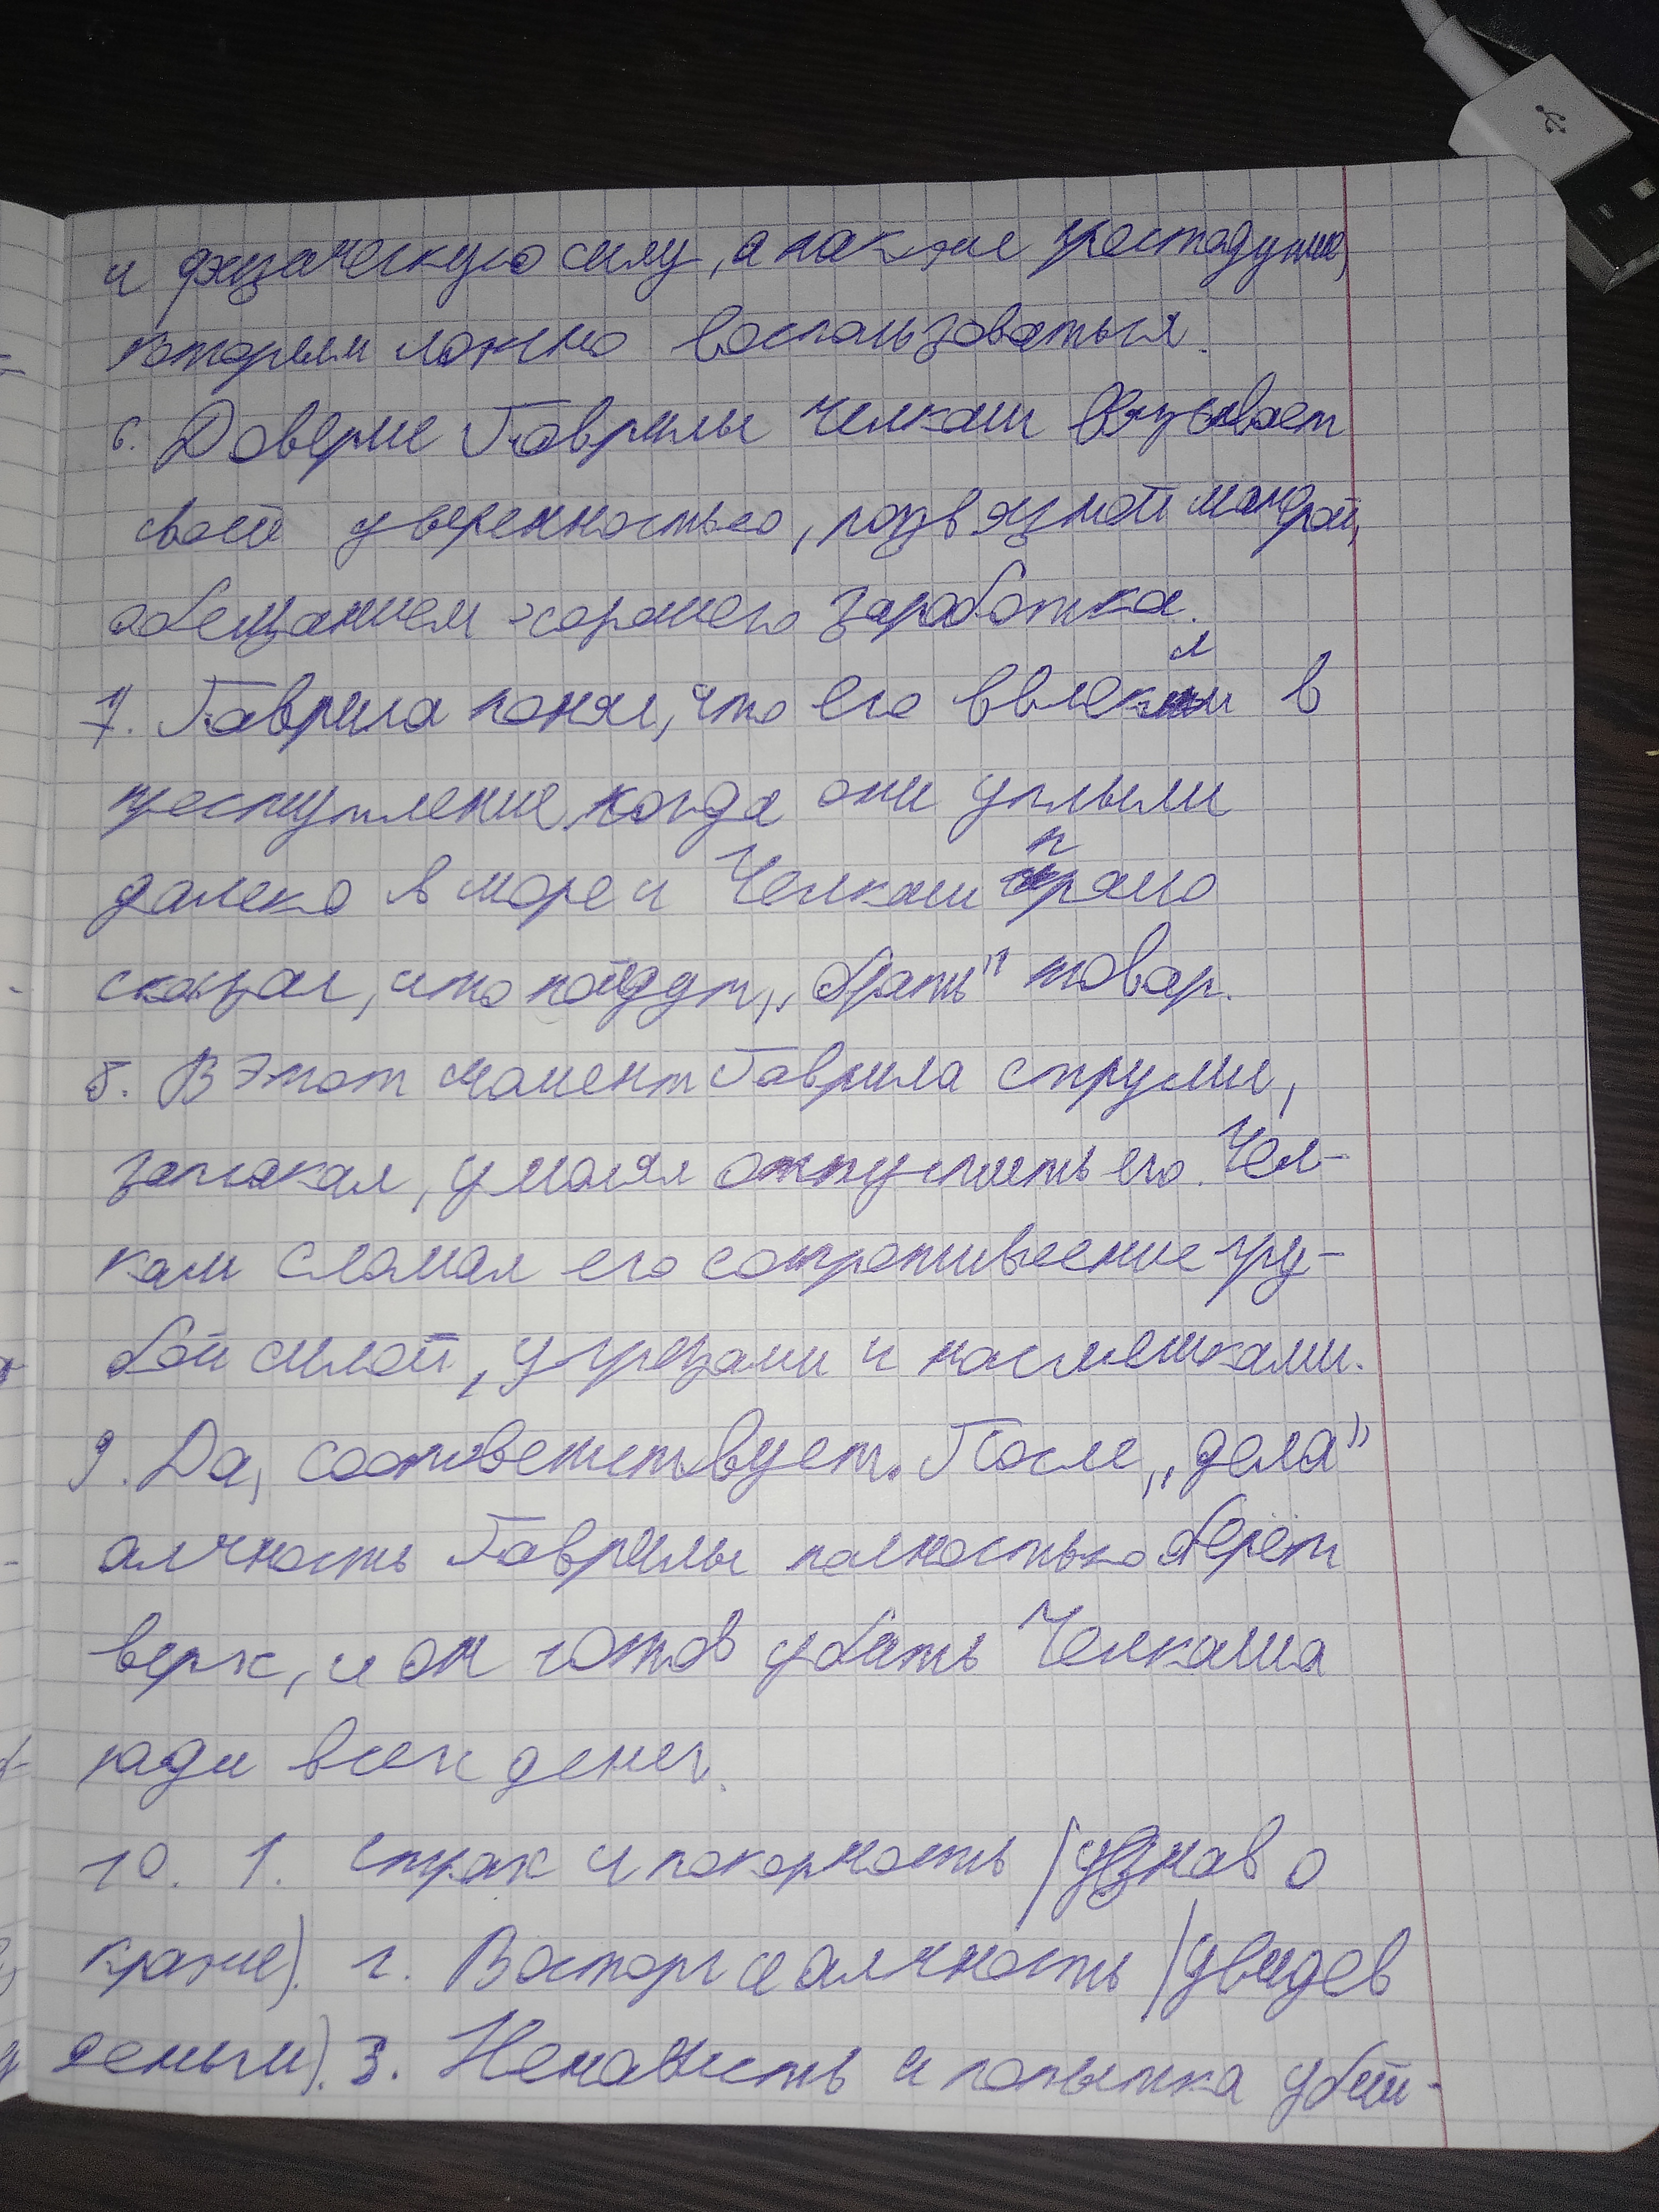 и физическую силу, а также простодушие,
которым можно воспользоваться.
6. Доверие Гаврилы Челкаш вызывает
своей уверенностью, развязной манерой,
обещанием хорошего заработка.
7. Гаврила понял, что его ввлекли в
преступление, когда они уплыли
далеко в море и Челкаш прямо
сказал, что пойдут „брать" товар.
8. В этот момент Гаврила струсил,
заплакал, умолял отпустить его. Чел-
каш сломал его сопротивление гру-
бой силой, угрозами и насмешками.
9. Да, соответствует. После „дела"
алчность Гаврилы полностью берёт
верх, и он готов убить Челкаша
ради всех денег.
10. 1. Страх и покорность (узнав о
краже). 2. Восторг и алчность (увидев
деньги). 3. Ненависть и попытка убий-